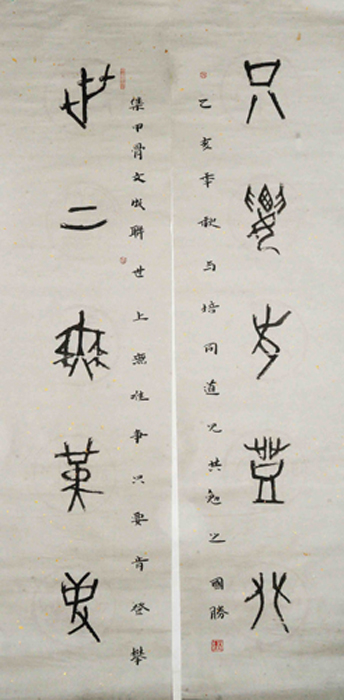 只要肯登攀
己亥年秋与培同道兄共勉之 國勝
集甲骨文成聯世上無難事只要肯登攀
世上無難事